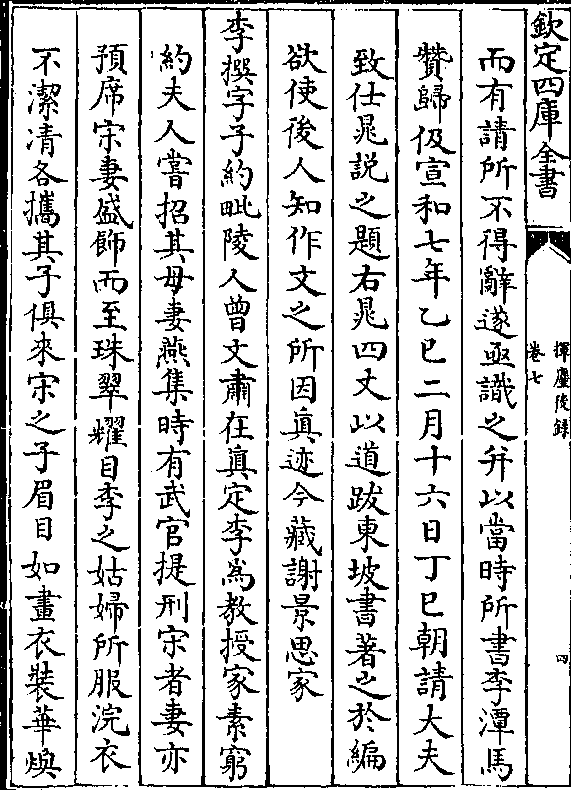 欽定四庫全書
揮麈後錄
卷七
四
而有請所不得辭遂亟識之并以當時所書李潭馬
贊歸伋宣和七年乙巳二月十六日丁巳朝請大夫
致仕晁説之題右晁四丈以道跋東坡書著之於編
欲使後人知作文之所因真迹今藏謝景思家
李撰字子約毗陵人曾文肅在真定李為教授家素窮
約夫人嘗招其母妻燕集時有武官提刑宋者妻亦
預席宋妻盛飾而至珠翠耀目李之姑婦所服浣衣
不潔清各攜其子俱來宋之子眉目如畫衣裝華煥